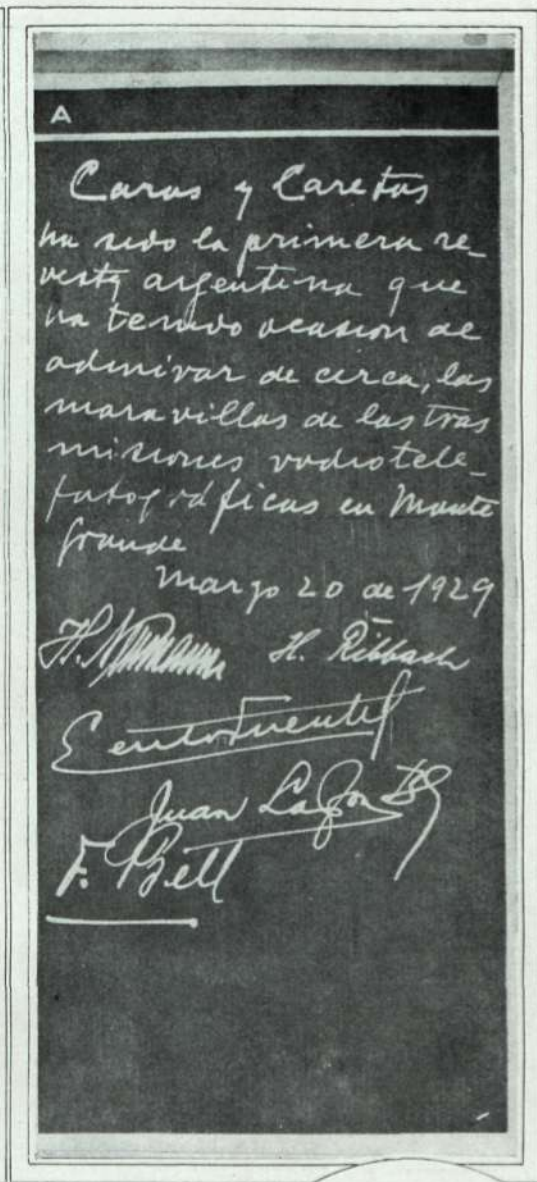 A
Caras y Caretas
ha sido la primera re-
vista argentina que
ha tenido ocasion de
admirar de cerca, las
maravillas de las tras
misiones radiotele-
fotográficas en Monte
Grande
Marzo 20 de 1929
H. Ribbach
Juan
F. Bell